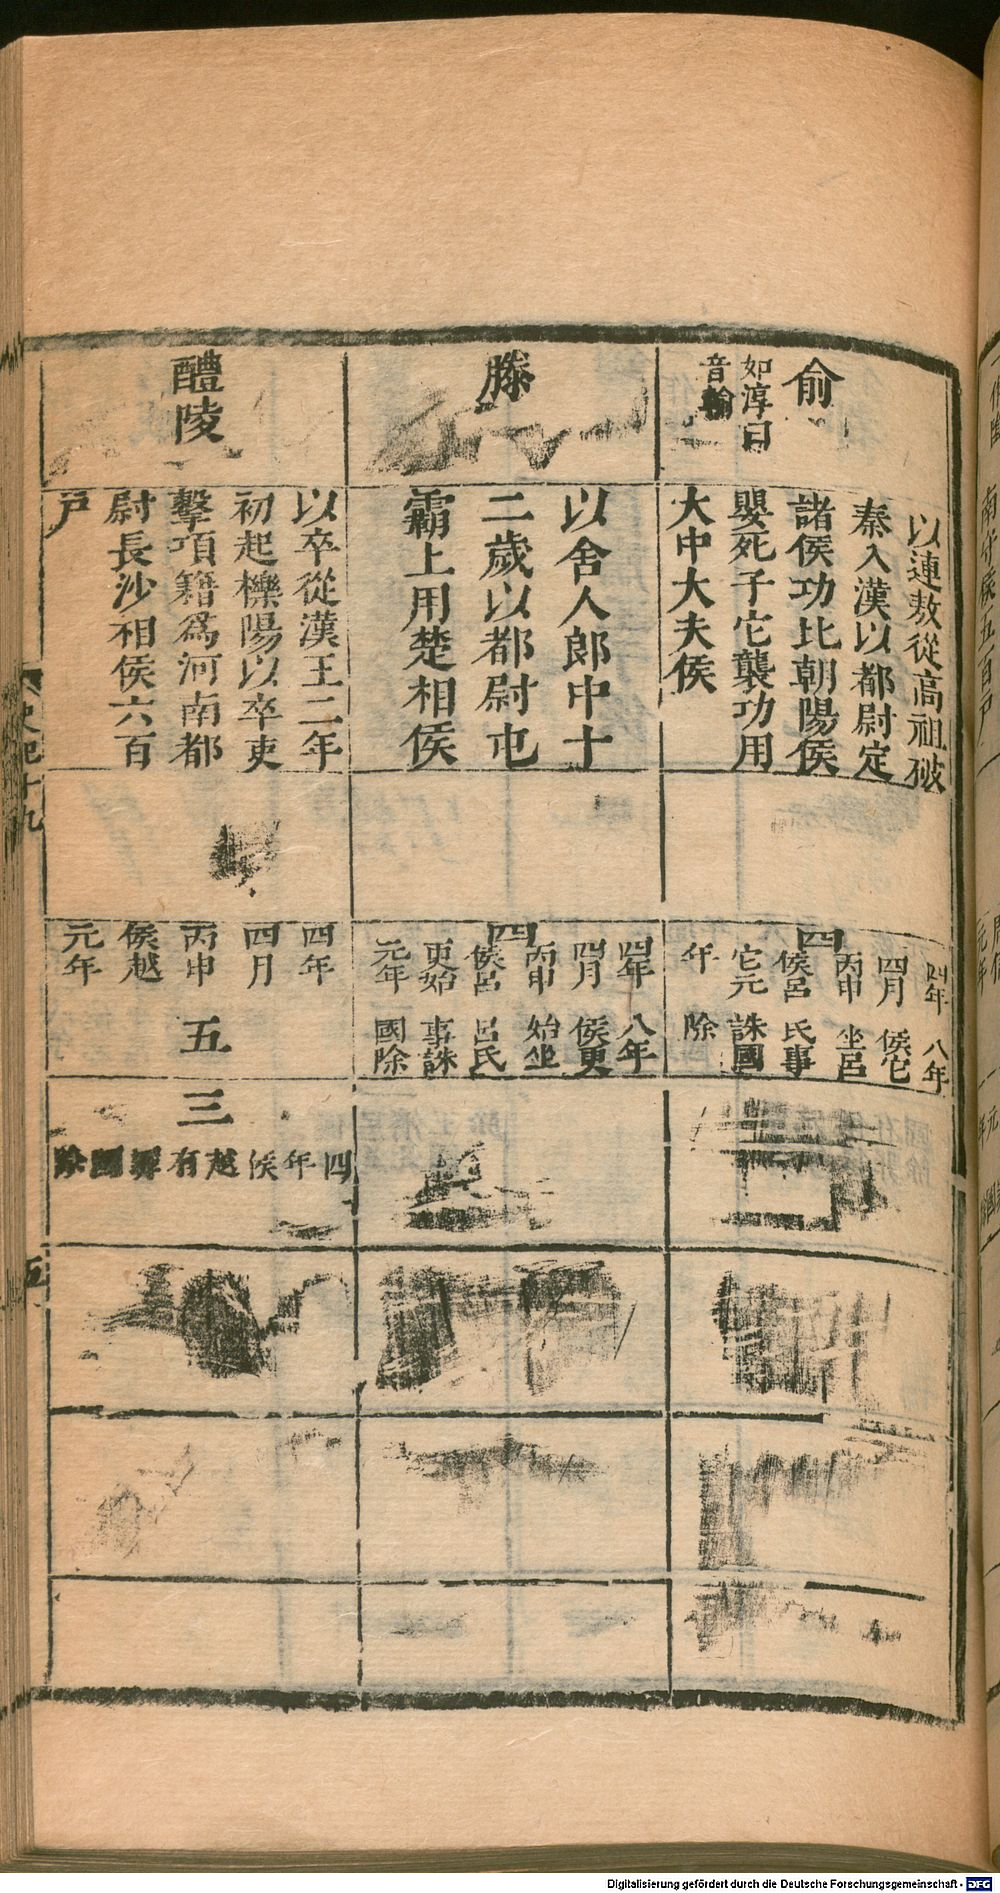 俞
如淳曰
音輸
以連敖從高祖破
秦入漢以都尉定
諸侯功比朝陽侯
嬰死子它襲功用
大中大夫侯
四
四年
四月
丙申
侯呂
它元
年
八年
侯它
坐呂
氏事
誅國
除
滕
以舍人郎中十
二歲以都尉屯
霸上用楚相侯
四
四年
四月
丙申
侯呂
更始
元年
八年
侯更
始坐
呂氏
事誅
國除
醴陵
以卒從漢王二年
初起櫟陽以卒吏
擊項籍爲河南都
尉長沙相侯六百
戸
四年
四月
丙申
侯越
元年
五
三
四年侯越有罪國除
史記十九
五
Digitalisierung gefördert durch die Deutsche Forschungsgemeinschaft - DFG